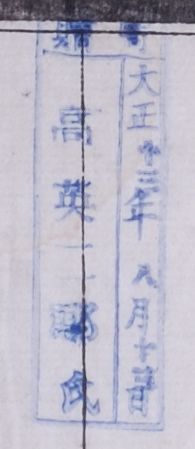 寄贈
大正十三年八月十日
高英郎氏